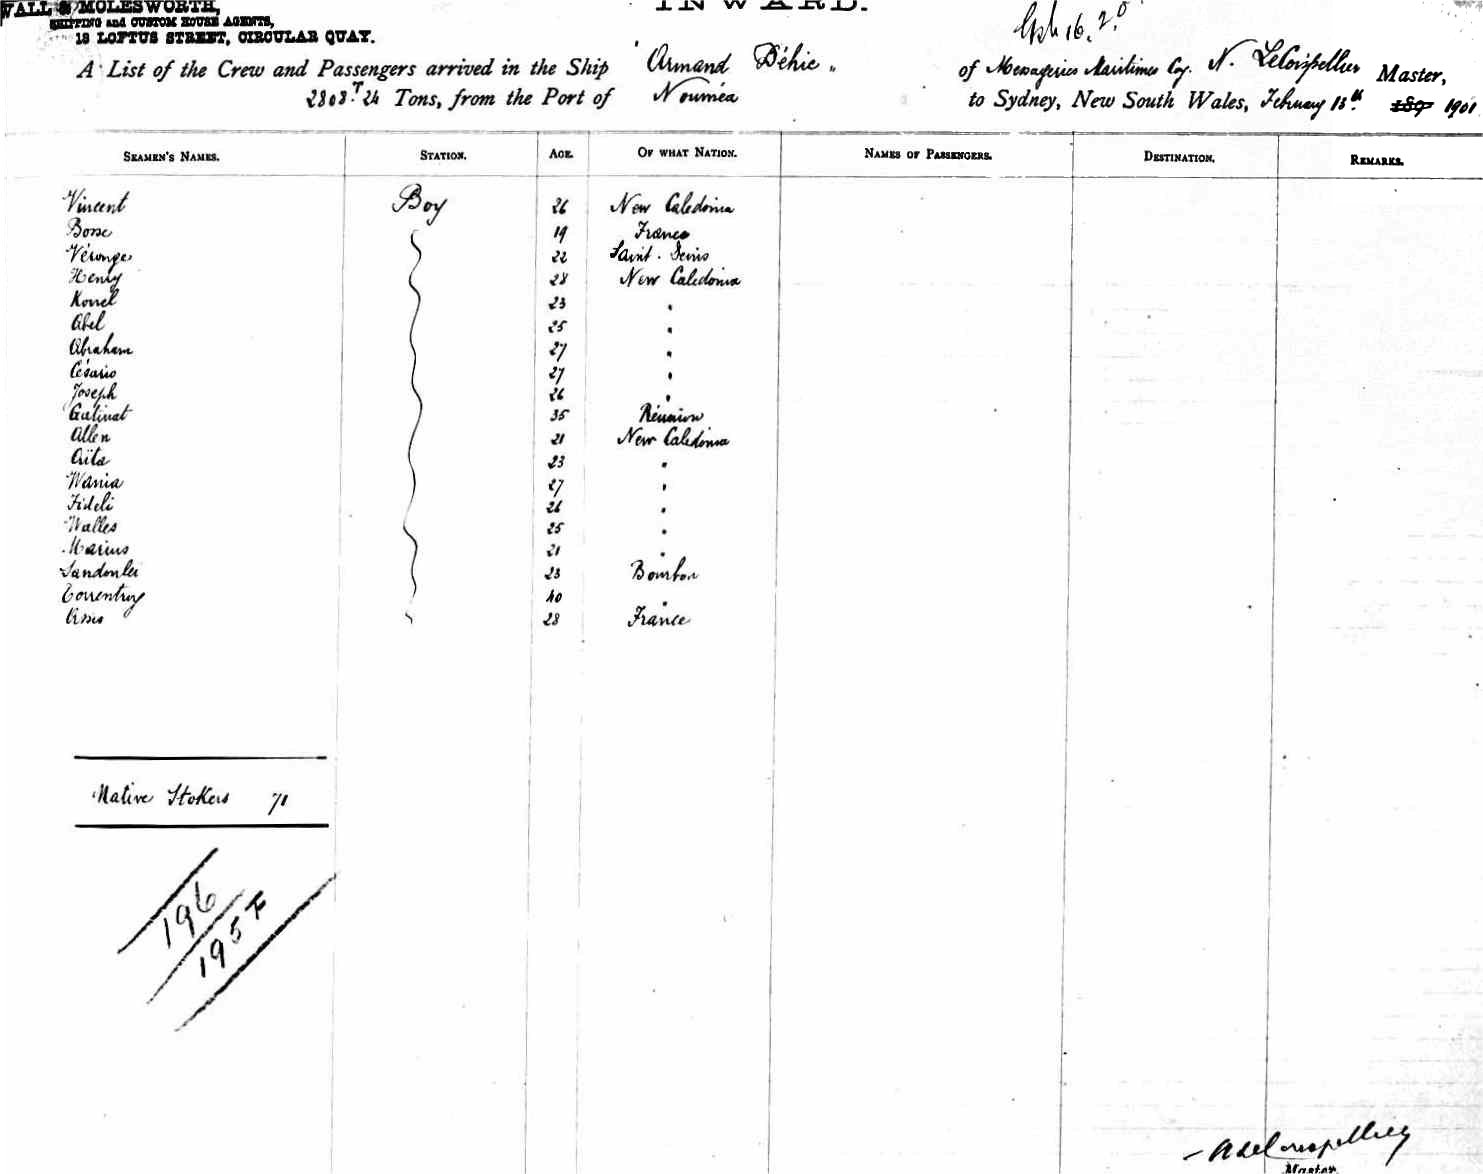 WALL & MOLESWORTH,
SHIPPING and CUSTOM HOUSE AGENTS,
18 LOFTUS STREET, CIRCULAR QUAY.
INWARD.
16.2.0
A List of the Crew and Passengers arrived in the Ship "Armand Béhic" of Messageries Maritimes Coy. N. Master,
2803 T 24 Tons, from the Port of Nouméa to Sydney, New South Wales, February 13th 189 1901
SEAMEN'S NAMES. STATION. AGE. OF WHAT NATION. NAMES OF PASSENGERS. DESTINATION. REMARKS.
Vincent Boy 26 New Caledonia
19 France
22 Saint Denis
Henry 28 New Caledonia
23 "
Abel 25 "
Abraham 27 "
Césario 27 "
Joseph 26 "
Gatinat 35 Réunion
Allen 21 New Caledonia
Aïta 23 "
Wania 27 "
Fideli 26 "
Walles 25 "
Marius 21 "
23 Bourbon
40 "
28 France
Native Stokers 71
196
195 F
Master.